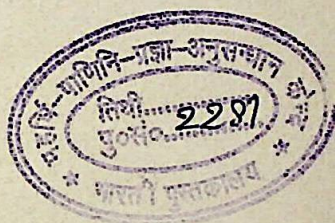 महर्षि-पाणिनि-प्रज्ञा-अनुसन्धान केन्द्र
तिथी..............
पु०सं०..2281
* भारती पुस्तकालय *